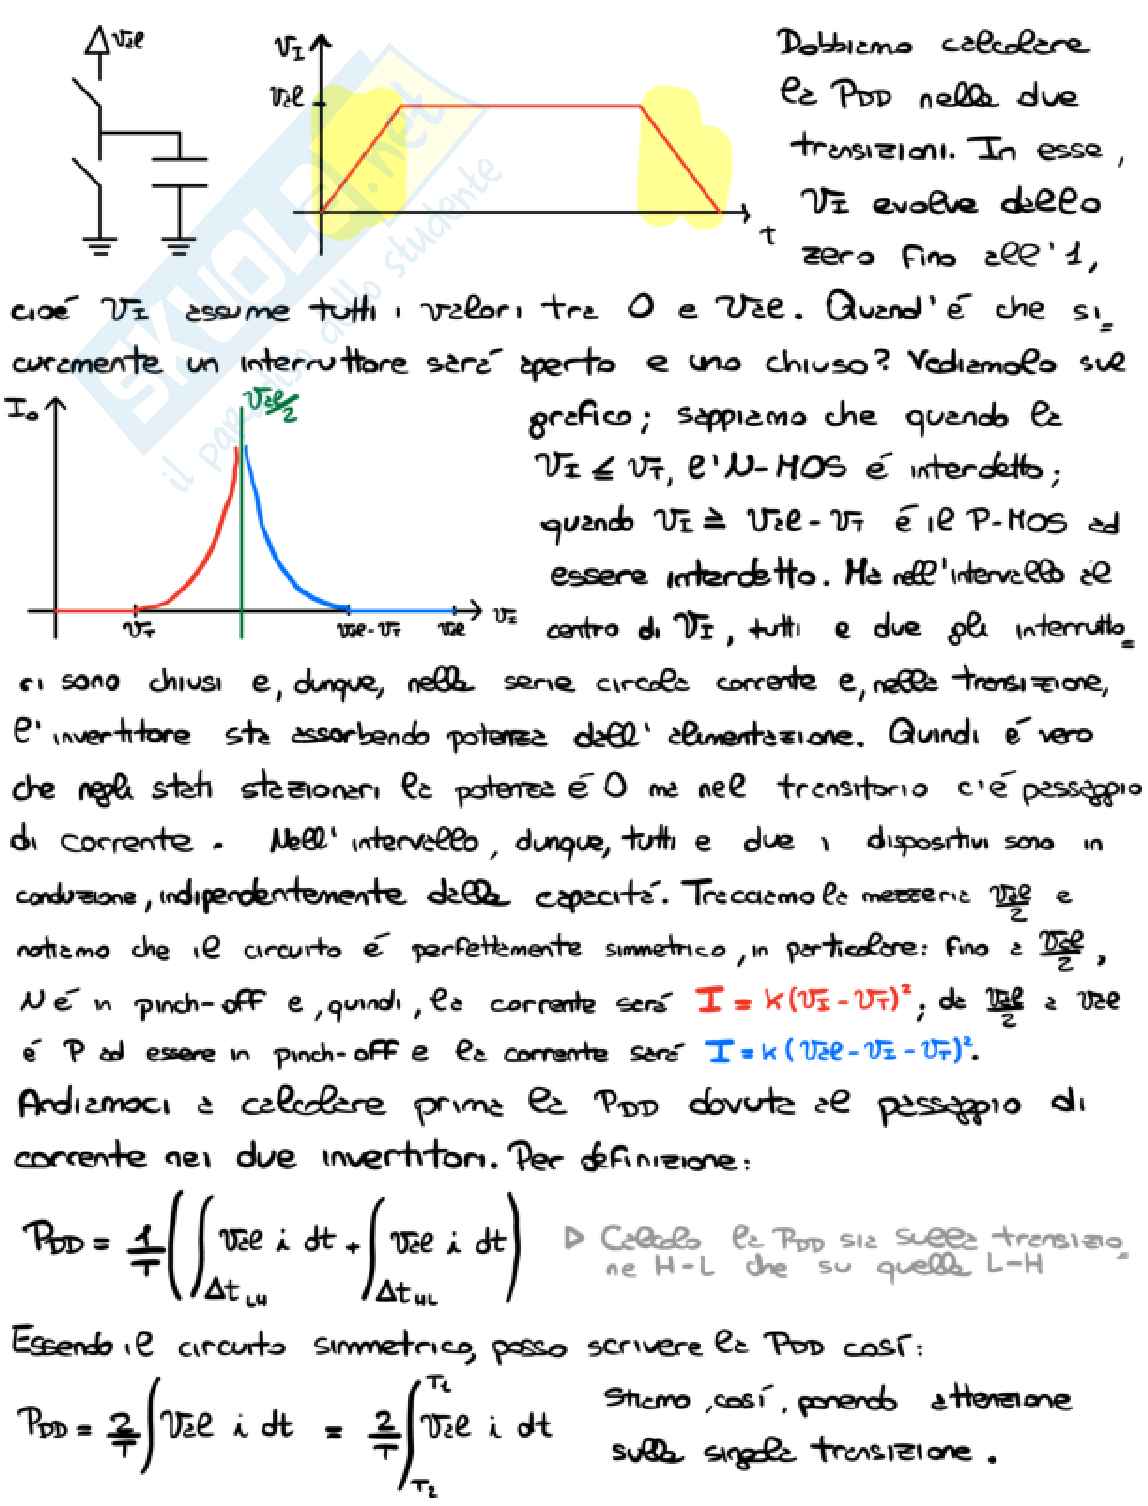 Val
VI
Val
t
Dobbiamo calcolare
la PDD nelle due
transizioni. In esse,
VI evolve dallo
zero fino all'1,
cioé VI assume tutti i valori tra 0 e Val. Quand'é che si=
curamente un interruttore sará aperto e uno chiuso? Vediamolo sul
I0
Val/2
VT
Val-VT
Val
VI
grafico; sappiamo che quando la
VI ≤ VT, l'N-MOS é interdetto;
quando VI ≥ Val - VT é il P-MOS ad
essere interdetto. Ma nell'intervallo al
centro di VI, tutti e due gli interrutto=
ri sono chiusi e, dunque, nella serie circola corrente e, nella transizione,
l'invertitore sta assorbendo potenza dall'alimentazione. Quindi é vero
che negli stati stazionari la potenza é 0 ma nel transitorio c'é passaggio
di corrente. Nell'intervallo, dunque, tutti e due i dispositivi sono in
conduzione, indipendentemente dalla capacitá. Tracciamo la mezzeria Val/2 e
notiamo che il circuito é perfettamente simmetrico, in particolare: fino a Val/2,
N é in pinch-off e, quindi, la corrente sará I = k(VI - VT)²; da Val/2 a Val
é P ad essere in pinch-off e la corrente sará I = k(Val - VI - VT)².
Andiamoci a calcolare prima la PDD dovuta al passaggio di
corrente nei due invertitori. Per definizione:
PDD = 1/T (∫ΔtLH Val i dt + ∫ΔtHL Val i dt)
▷ Calcolo la PDD sia sulla transizio=
ne H-L che su quella L-H
Essendo il circuito simmetrico, posso scrivere la PDD cosí:
PDD = 2/T ∫ Val i dt = 2/T ∫T2 T1 Val i dt
Stiamo, cosí, ponendo attenzione
sulla singola transizione.
SKUOLA.net
il paradiso dello studente